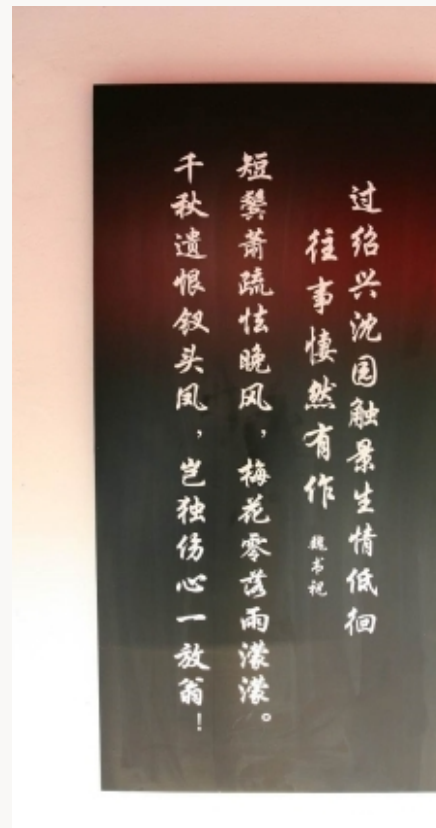 过绍兴沈园触景生情低徊
往事悽然有作
魏书祝
短鬓萧疏怯晚风，梅花零落雨濛濛。
千秋遗恨钗头凤，岂独伤心一放翁！